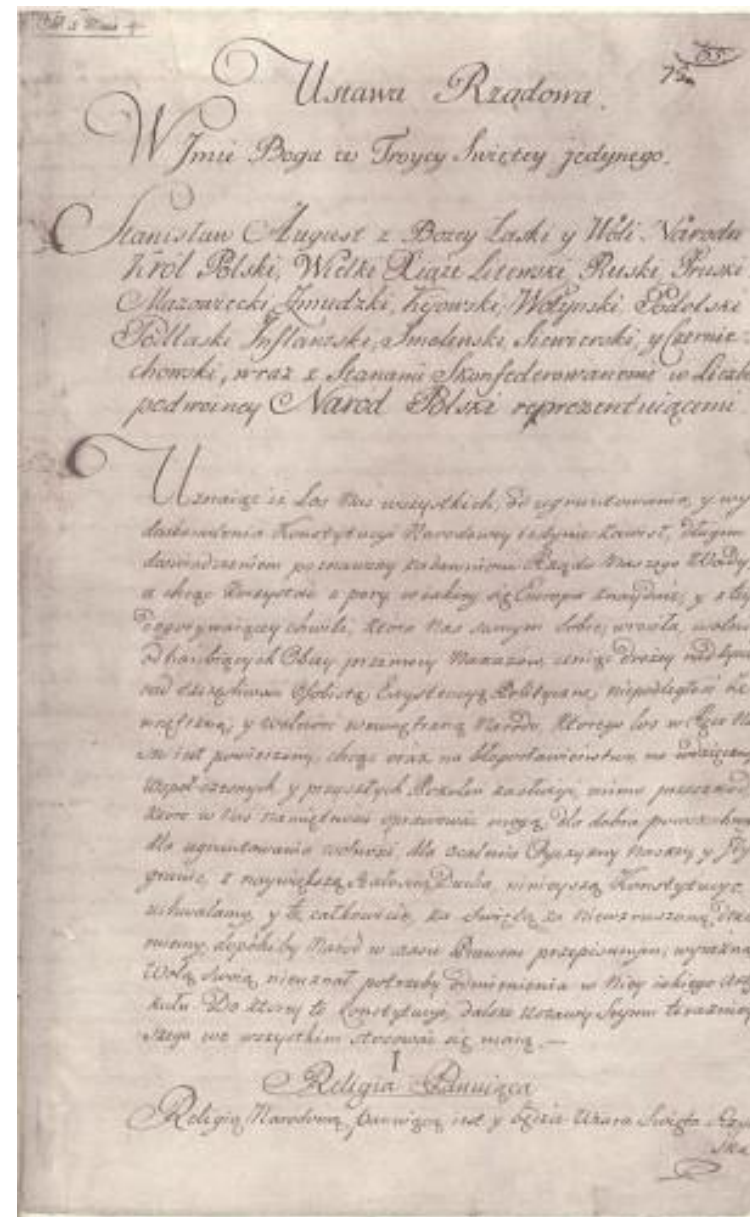 65
Ustawa Rządowa.
W Jmie Boga w Troycy Swiętey jedynego.
Stanisław August z Bozey Łaski y Woli Narodu
Król Polski, Wielki Xiąze Litewski, Ruski, Pruski
Mazowiecki, Zmudzki, Kijowski, Wołynski, Podolski
Podlaski Inflantski, Smolenski Siewierski, y Czernie-
chowski, wraz z Stanami Skonfederowanemi w Liczbie
podwoiney Narod Polski reprezentuiącemi
Uznaiąc iz Los Nas wszystkich, od ugruntowania, y wy
doskonalenia Konstytucyi Narodowey iedynie zawisł, długim
doswiadczeniem poznawszy zadawnione Rządu Naszego Wady,
a chcąc korzystać z pory w iakiey się Europa znayduie, y z tey
dogorywaiącey chwili, ktora Nas samym sobie wrociła, wolni
od hanbiących Obcey przemocy Nakazow, ceniąc drożey nad życie
nad szczęśliwosc Osobistą, Exystencyą Polityczną, niepodległosc ze
wnętrzną, y wolnosc wewnętrzną Narodu, ktorego los w Ręce Na
sze iest powierzony, chcąc oraz na błogosławieństwo, na wdzięcznosc
Wspołczesnych y przyszłych Pokolen zasłużyć, mimo przeszkod,
ktore w Nas namiętnosci sprawować mogą, dla dobra powszechnego
dla ugruntowania wolnosci, dla ocalenia Oyczyzny Naszey y Jey
granic, z naywiększą stałoscią Ducha, ninieyszą Konstytucyę
uchwalamy, y tę całkowicie, za swiętą, za niewzruszoną dekla
ruiemy, dopokiby Narod w czasie Prawem przepisanym, wyrazną
Wolą swoią, nieuznał potrzeby odmienienia w Niey iakiego Arty
kułu. Do ktorey to Konstytucyi, dalsze Ustawy Seymu teraznie-
szego we wszystkim stosować się maią.—
I
Religia Panuiąca
Religią Narodową, panuiącą iest y będzie Wiara Swięta Rzym
ska